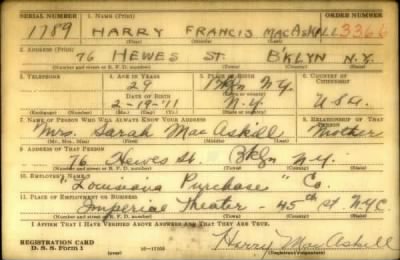 SERIAL NUMBER 1. NAME (Print) ORDER NUMBER
1789 HARRY FRANCIS MACASKILL 3366
(First) (Middle) (Last)
2. ADDRESS (Print)
76 HEWES ST. B'KLYN N.Y.
(Number and street or R. F. D. number) (Town) (County) (State)
3. TELEPHONE 4. AGE IN YEARS 5. PLACE OF BIRTH 6. COUNTRY OF CITIZENSHIP
29 Bklyn N.Y.
DATE OF BIRTH (Town or county)
2-19-11 N.Y. USA
(Exchange) (Number) (Mo.) (Day) (Yr.) (State or country)
7. NAME OF PERSON WHO WILL ALWAYS KNOW YOUR ADDRESS 8. RELATIONSHIP OF THAT PERSON
Mrs. Sarah MacAskill Mother
(Mr., Mrs., Miss) (First) (Middle) (Last)
9. ADDRESS OF THAT PERSON
76 Hewes St. Bklyn N.Y.
(Number and street or R. F. D. number) (Town) (County) (State)
10. EMPLOYER'S NAME
"Louisiana Purchase" Co.
11. PLACE OF EMPLOYMENT OR BUSINESS
Imperial Theater - 45th St NYC
(Number and street or R. F. D. number) (Town) (County) (State)
I AFFIRM THAT I HAVE VERIFIED ABOVE ANSWERS AND THAT THEY ARE TRUE.
REGISTRATION CARD
D. S. S. Form 1 (over) Harry MacAskill
(Registrant's signature)